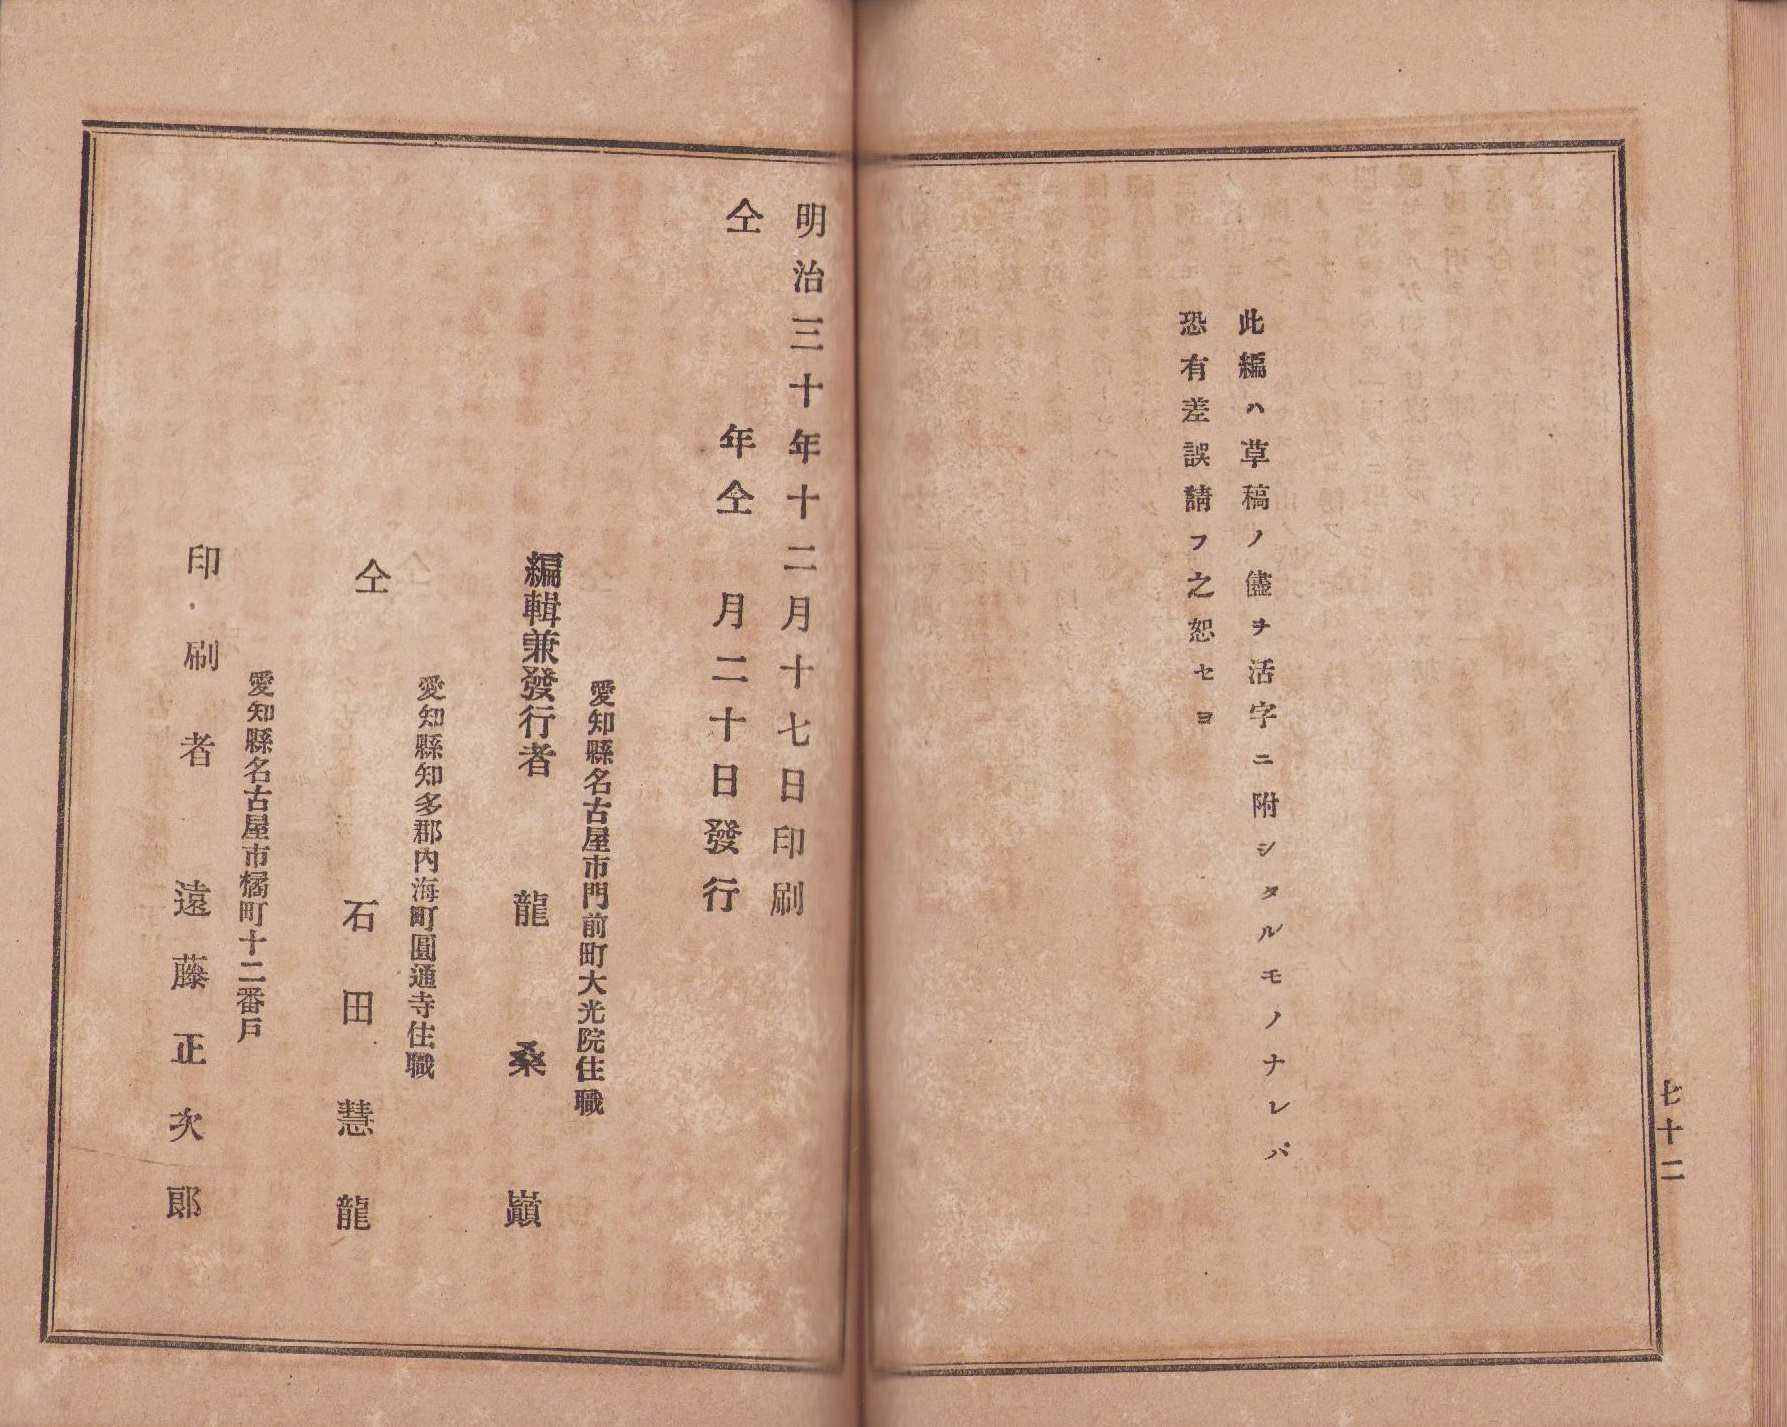 七十二
此編ハ草稿ノ儘ヲ活字ニ附シタルモノナレバ
恐有差誤請フ之恕セヨ
明治三十年十二月十七日印刷
仝年仝月二十日發行
愛知縣名古屋市門前町大光院住職
編輯兼發行者 龍桑巓
愛知縣知多郡內海町圓通寺住職
仝 石田慧龍
愛知縣名古屋市橘町十二番戶
印刷者 遠藤正次郎